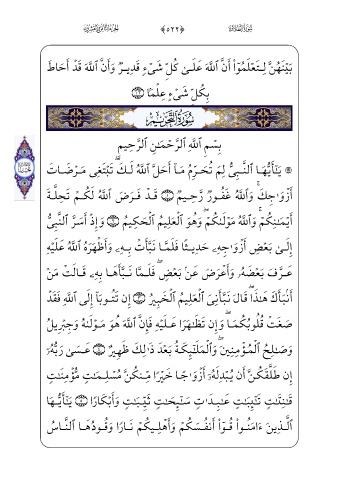 سُورَةُ الطَّلَاقِ ﴿٥٢٢﴾ الجُزءُ الثَّامِنُ وَالعِشْرُون
بَيْنَهُنَّ لِتَعْلَمُوٓا۟ أَنَّ ٱللَّهَ عَلَىٰ كُلِّ شَىْءٍ قَدِيرٌ وَأَنَّ ٱللَّهَ قَدْ أَحَاطَ
بِكُلِّ شَىْءٍ عِلْمًۢا
سُورَةُ التَّحْرِيمِ
بِسْمِ ٱللَّهِ ٱلرَّحْمَـٰنِ ٱلرَّحِيمِ
۞ يَـٰٓأَيُّهَا ٱلنَّبِىُّ لِمَ تُحَرِّمُ مَآ أَحَلَّ ٱللَّهُ لَكَ ۖ تَبْتَغِى مَرْضَاتَ
أَزْوَٰجِكَ ۚ وَٱللَّهُ غَفُورٌ رَّحِيمٌ قَدْ فَرَضَ ٱللَّهُ لَكُمْ تَحِلَّةَ
أَيْمَـٰنِكُمْ ۚ وَٱللَّهُ مَوْلَىٰكُمْ ۖ وَهُوَ ٱلْعَلِيمُ ٱلْحَكِيمُ وَإِذْ أَسَرَّ ٱلنَّبِىُّ
إِلَىٰ بَعْضِ أَزْوَٰجِهِۦ حَدِيثًا فَلَمَّا نَبَّأَتْ بِهِۦ وَأَظْهَرَهُ ٱللَّهُ عَلَيْهِ
عَرَّفَ بَعْضَهُۥ وَأَعْرَضَ عَنۢ بَعْضٍ ۖ فَلَمَّا نَبَّأَهَا بِهِۦ قَالَتْ مَنْ
أَنۢبَأَكَ هَـٰذَا ۖ قَالَ نَبَّأَنِىَ ٱلْعَلِيمُ ٱلْخَبِيرُ إِن تَتُوبَآ إِلَى ٱللَّهِ فَقَدْ
صَغَتْ قُلُوبُكُمَا ۖ وَإِن تَظَـٰهَرَا عَلَيْهِ فَإِنَّ ٱللَّهَ هُوَ مَوْلَىٰهُ وَجِبْرِيلُ
وَصَـٰلِحُ ٱلْمُؤْمِنِينَ ۖ وَٱلْمَلَـٰٓئِكَةُ بَعْدَ ذَٰلِكَ ظَهِيرٌ عَسَىٰ رَبُّهُۥٓ
إِن طَلَّقَكُنَّ أَن يُبْدِلَهُۥٓ أَزْوَٰجًا خَيْرًا مِّنكُنَّ مُسْلِمَـٰتٍ مُّؤْمِنَـٰتٍ
قَـٰنِتَـٰتٍ تَـٰٓئِبَـٰتٍ عَـٰبِدَٰتٍ سَـٰٓئِحَـٰتٍ ثَيِّبَـٰتٍ وَأَبْكَارًا يَـٰٓأَيُّهَا
ٱلَّذِينَ ءَامَنُوا۟ قُوٓا۟ أَنفُسَكُمْ وَأَهْلِيكُمْ نَارًا وَقُودُهَا ٱلنَّاسُ